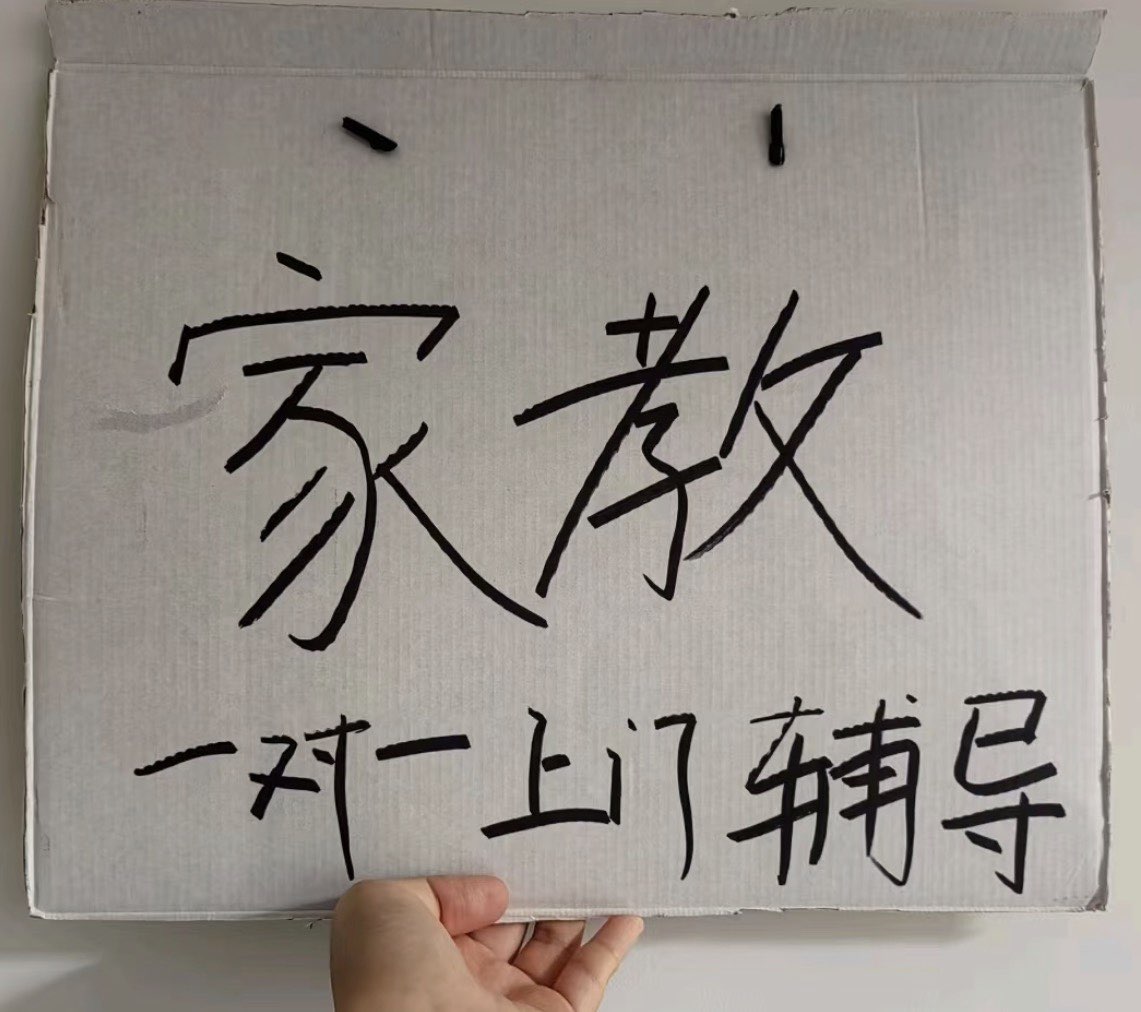 家教
一对一上门辅导